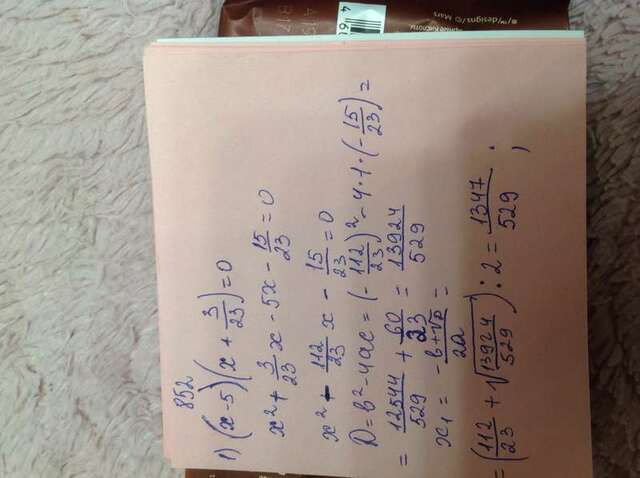 852
1) (x - 5)(x + 3/23) = 0
x² + 3/23 x - 5x - 15/23 = 0
x² - 112/23 x - 15/23 = 0
D = b² - 4ac = (- 112/23)² - 4·1·(- 15/23) =
= 12544/529 + 60/23 = 13924/529
x₁ = -b+√D/2a =
= (112/23 + √13924/529) : 2 = 1347/529 ;
®/™/designs/© Mars